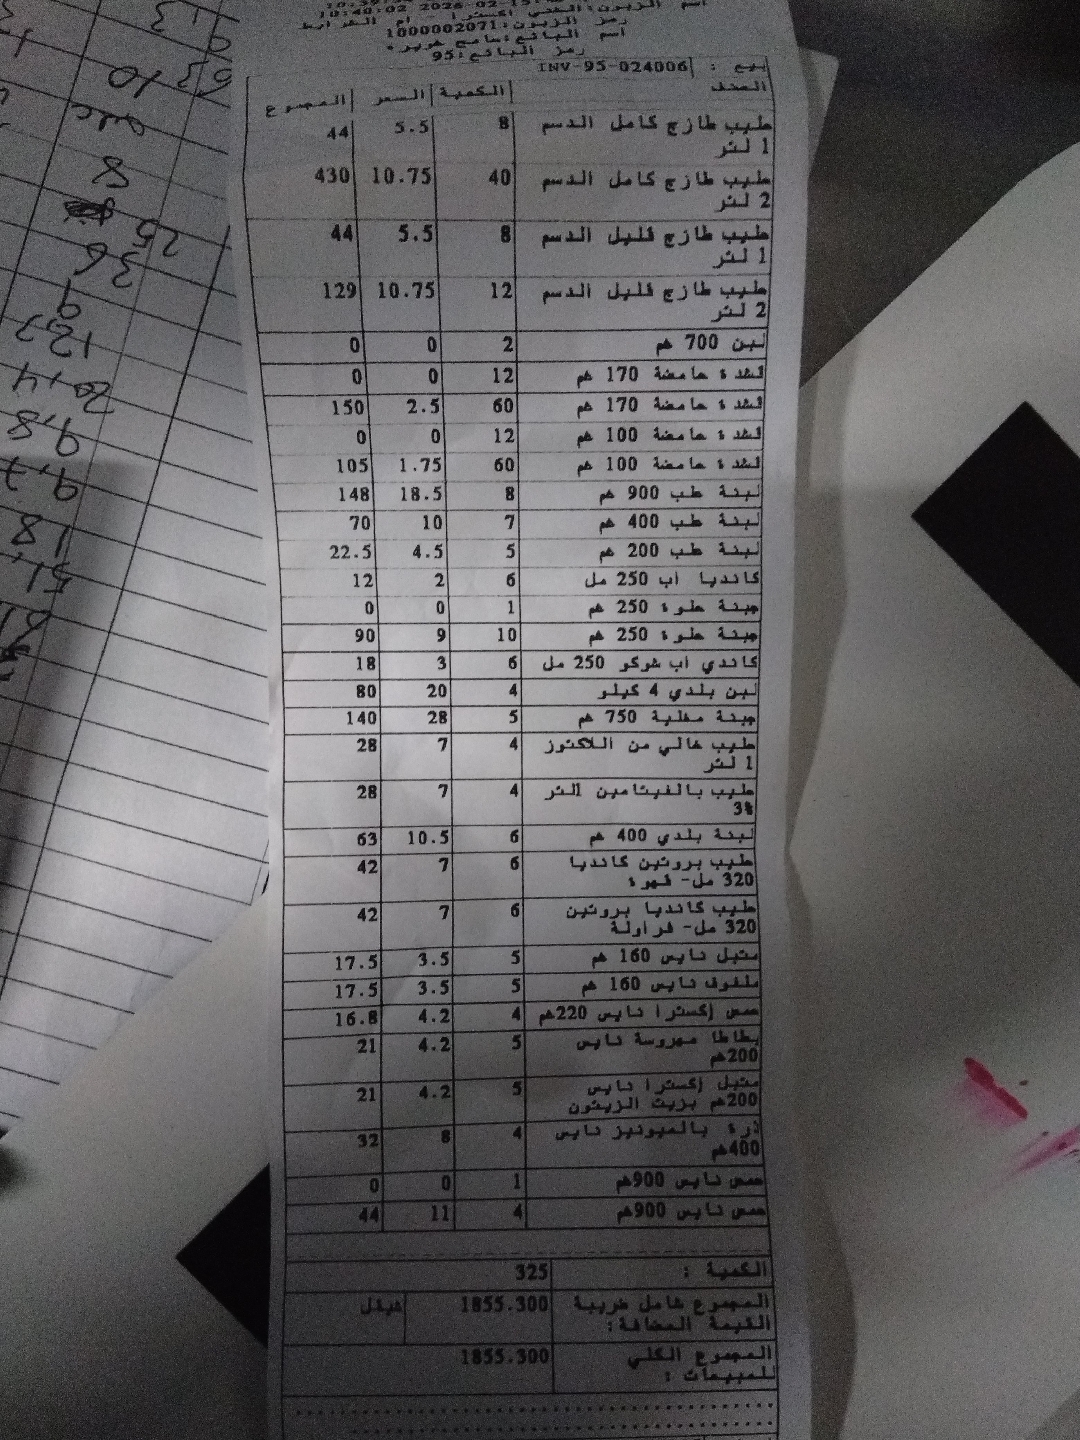 10:40:02 2026-02-15
رمز الزبون:1000002071
اسم البائع:سامح
رمز البائع:95
بيع : INV-95-024006
الصنف الكمية السعر المجموع
حليب طازج كامل الدسم 8 5.5 44
1 لتر
حليب طازج كامل الدسم 40 10.75 430
2 لتر
حليب طازج قليل الدسم 8 5.5 44
1 لتر
حليب طازج قليل الدسم 12 10.75 129
2 لتر
لبن 700 غم 2 0 0
قشدة حامضة 170 غم 12 0 0
قشدة حامضة 170 غم 60 2.5 150
قشدة حامضة 100 غم 12 0 0
قشدة حامضة 100 غم 60 1.75 105
لبنة طب 900 غم 8 18.5 148
لبنة طب 400 غم 7 10 70
لبنة طب 200 غم 5 4.5 22.5
كانديا اب 250 مل 6 2 12
جبنة حلوة 250 غم 1 0 0
جبنة حلوة 250 غم 10 9 90
كاندي اب شوكو 250 مل 6 3 18
لبن بلدي 4 كيلو 4 20 80
جبنة مغلية 750 غم 5 28 140
حليب خالي من اللاكتوز 4 7 28
1 لتر
حليب بالفيتامين 1لتر 4 7 28
3%
لبنة بلدي 400 غم 6 10.5 63
حليب بروتين كانديا 6 7 42
320 مل- قهوة
حليب كانديا بروتين 6 7 42
320 مل- فراولة
متبل نايس 160 غم 5 3.5 17.5
ملفوف نايس 160 غم 5 3.5 17.5
حمص إكسترا نايس 220غم 4 4.2 16.8
بطاطا مهروسة نايس 5 4.2 21
200غم
متبل إكسترا نايس 5 4.2 21
200غم بزيت الزيتون
ذرة بالميونيز نايس 4 8 32
400غم
حمص نايس 900غم 1 0 0
حمص نايس 900غم 4 11 44
الكمية : 325
المجموع شامل ضريبة 1855.300 شيقل
القيمة المضافة:
المجموع الكلي 1855.300
للمبيعات :
10
8
25
36
9
122
20,4
9,8
9,7
18